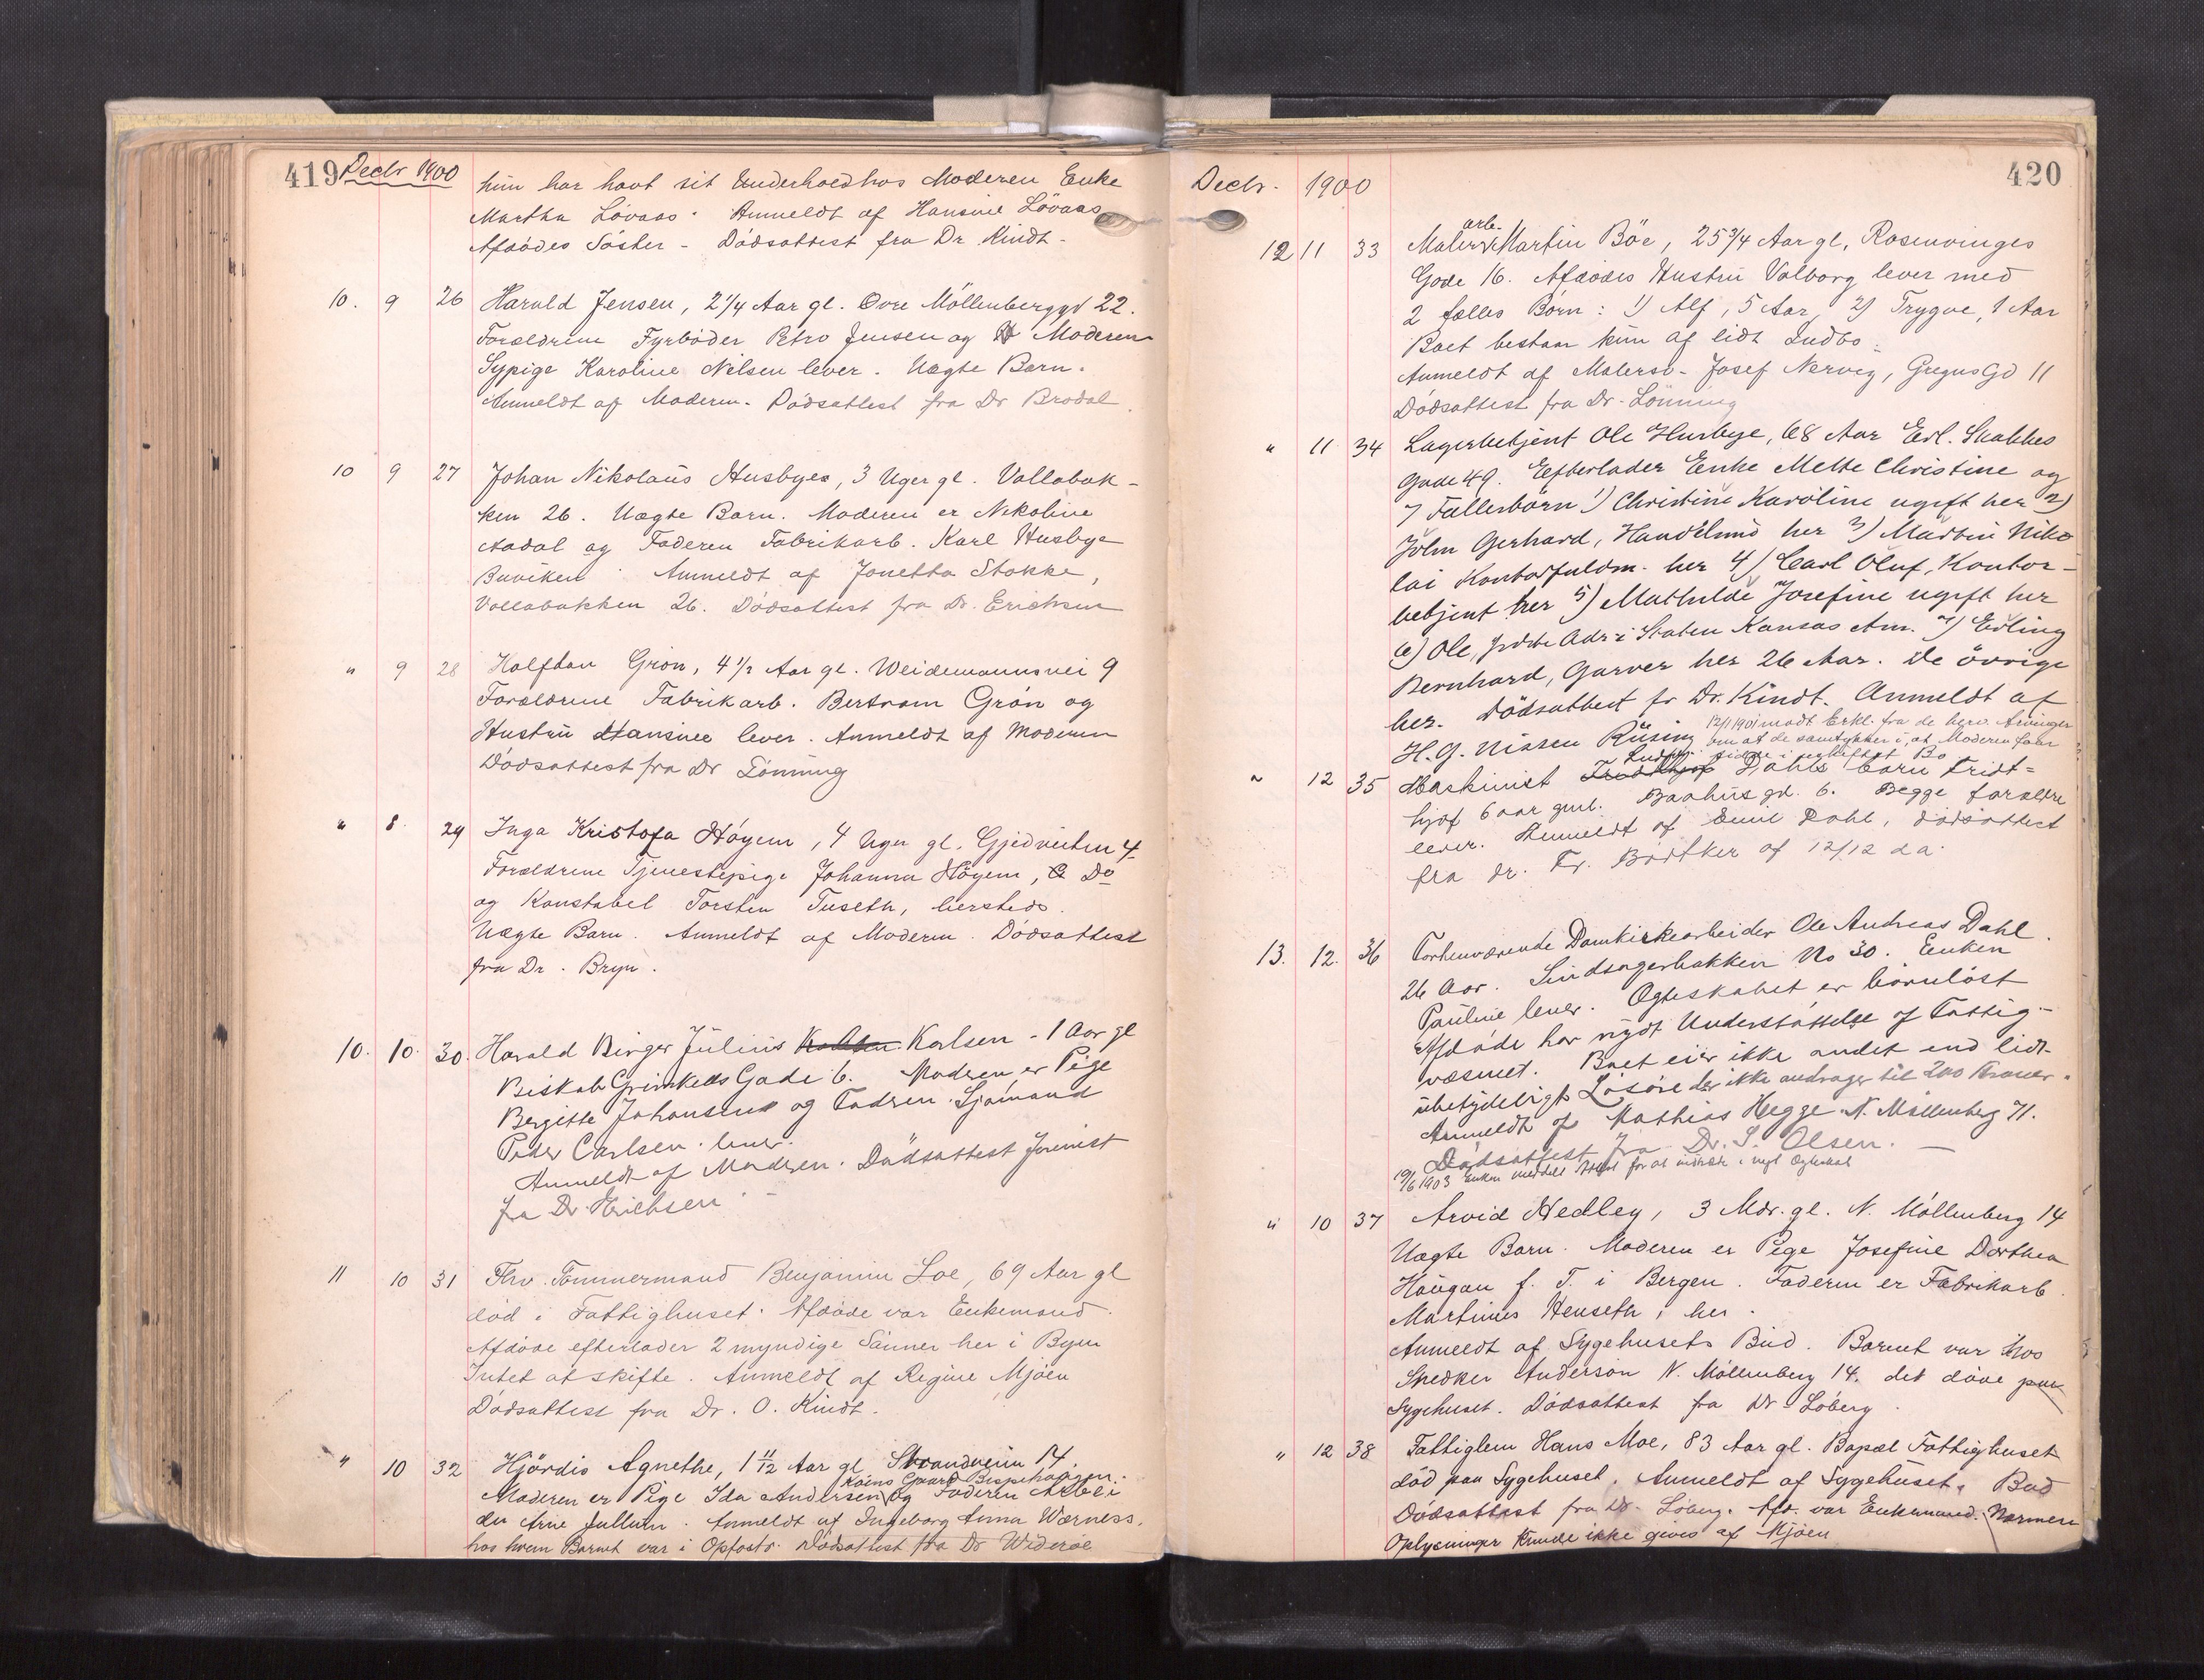 419 Decbr 1900
hun har havt sit Underhold hos Moderen Enke
Martha Lövaas. Anmeldt af Hansine Lövaas
Afdödes Söster - Dödsattest fra Dr Kindt -
10. 9 26 Harald Jensen, 2 1/4 Aar gl. Övre Möllenberggd 22.
Forældrene Fyrböder Petro Jensen og Moderen
Sypige Karoline Nilsen lever. Uægte Barn.
Anmeldt af Moderen. Dödsattest fra Dr Brodal
10 9 27 Johan Nikolaus Husbye, 3 Uger gl. Vollabak-
ken 26. Uægte Barn. Moderen er Nikoline
Aadal og Faderen Fabrikarb. Karl Husbye
Buviken. Anmeldt af Jonetta Stokke,
Vollabakken 26. Dödsattest fra Dr. Erichsen
" 9 28 Halfdan Grön, 4 1/2 Aar gl. Weidemannsvei 9
Forældrene Fabrikarb. Bertram Grön og
Hustru Hansine lever. Anmeldt af Moderen
Dödsattest fra Dr Lönning
" 8 29 Inga Kristofa Höyem, 4 Uger gl. Gjedveiten 4
Forældrene Tjenestepige Johanna Höyem, Do
og Konstabel Torsten Tuseth, hersteds.
Uægte Barn. Anmeldt af Moderen. Dödsattest
fra Dr. Bryn.
10. 10. 30. Harald Birger Julius Karlsen - 1 Aar gl
Biskob Grimkels Gade 6. Moderen er Pige
Bergitte Johansen og Fadren Sjömand
Peder Carlsen lever.
Anmeldt af Moderen. Dödsattest
fra Dr Erichsen -
11 10 31 Fhv. Tömmermand Benjamin Loe, 69 Aar gl
död i Fattighuset. Afdöde var Enkemand.
Afdöde efterlader 2 myndige Sönner her i Byen
Intet at skifte. Anmeldt af Regine Mjöen
Dödsattest fra Dr. O. Kindt.
" 10 32 Hjördis Agnethe, 1 11/12 Aar gl. Strandveien 14.
Koens Gaard Bispehaugen.
Moderen er Pige Ida Andersen og Faderen Arbei
der Arne Jullum. Anmeldt af Ingeborg Anna Wærness.
hos hvem Barnet var i Opfostr. Dödsattest fra Dr Wideröe
Decbr. 1900 420
arb.
12 11 33 Maler Martin Böe, 25 3/4 Aar gl, Rosenvinges
Gade 16. Afdödes Hustru Valborg lever med
2 fælles Börn: 1) Alf, 5 Aar, 2) Trygve, 1 Aar
Boet bestaar kun af lidt Indbo.
Anmeldt af Malersv. Josef Nervig, Gregus Gd 11
Dödsattest fra Dr. Lönning
" 11 34 Lagerbetjent Ole Husbye, 68 Aar Erl. Skakkes
Gade 49. Efterlader Enke Mette Christine og
7 Fællesbörn 1) Christine Karoline ugift her 2)
John Gerhard, Handelsmd her 3) Martin Niko
lai Kontorfuldm. her 4) Carl Oluf, Kontor-
betjent her 5) Mathilde Josefine ugift her
6) Ole, Adr i Staten Kansas Am. 7) Erling
Bernhard, Garver her 26 Aar. De övrige
her. Dödsattest fr Dr. Kindt. Anmeldt af
H. G. Nissen Rüsing 12/1 1901 modt Erkl. fra de Arvinger
om at de samtykker i, at Moderen faar
sidde i uskiftet Bo
~ 12 35 Maskinist Dahls barn Fridt=
hjof 6 aar gml. Baahusgd. 6. Begge forældre
lever. Anmeldt af Emil Dahl, dödsattest
fra Dr. Fr. Bödtker af 12/12 d.a.
13. 12. 36 Forhenværende Domkirkearbeider Ole Andreas Dahl.
26 Aar. Sindsagerbakken No 30. Enken
Pauline lever. Ægteskabet er barnlöst
Afdöde har nydt Understöttelse af Fattig-
væsenet. Boet eier ikke andet end lidt
ubetydeligt Lösöre der ikke andrager til 200 Kroner.
Anmeldt af Mathias Hegge N. Möllenberg 71.
Dödsattest fra Dr. S. Olsen. -
19/6 1903 Enken meddelt Attest for at indtræde i nyt Ægteskab
" 10 37 Arvid Hedley, 3 Mdr. gl. N. Möllenberg 14
Uægte Barn. Moderen er Pige Josefine Dorthea
Haugan f. T. i Bergen. Faderen er Fabrikarb.
Martinus Henseth, her.
Anmeldt af Sygehusets Bud. Barnet var hos
Snedker Anderson N. Möllenberg 14. det döde paa
Sygehuset. Dödsattest fra Dr Löberg.
" 12 38 Fattiglem Hans Moe, 83 Aar gl. Bopæl Fattighuset
död paa Sygehuset. Anmeldt af Sygehusets Bud
Dödsattest fra Dr. Löberg. Afd. var Enkemand. Nærmere
Oplysninger kunde ikke gives af Mjöen